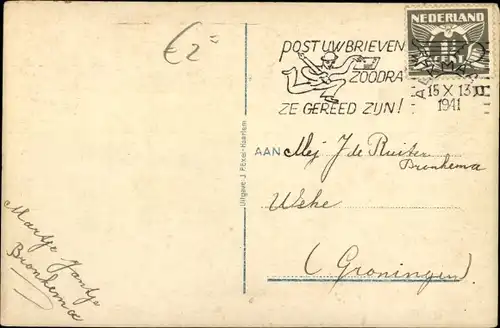 € 2=
POST UW BRIEVEN
ZOODRA
ZE GEREED ZIJN!
NEDERLAND
15 X 13
1941
Uitgave: J. P. Exel - Haarlem
AAN Mej J de Ruiter
Bronhema
Wehe
(Groningen)
Martje Jantje
Bronhema